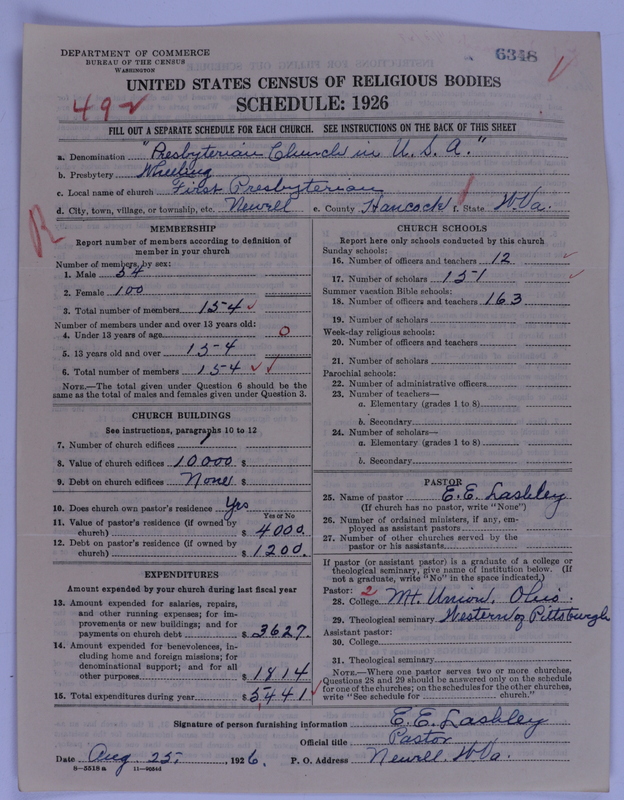 DEPARTMENT OF COMMERCE
BUREAU OF THE CENSUS
WASHINGTON
6348
UNITED STATES CENSUS OF RELIGIOUS BODIES
49
SCHEDULE: 1926
FILL OUT A SEPARATE SCHEDULE FOR EACH CHURCH. SEE INSTRUCTIONS ON THE BACK OF THIS SHEET
a. Denomination "Presbyterian Church in U. S. A."
b. Presbytery Wheeling
c. Local name of church First Presbyterian
d. City, town, village, or township, etc. Newell e. County Hancock f. State W.Va.
R
MEMBERSHIP
Report number of members according to definition of
member in your church
Number of members by sex:
1. Male 54
2. Female 100
3. Total number of members 154
Number of members under and over 13 years old:
4. Under 13 years of age 0
5. 13 years old and over 154
6. Total number of members 154
NOTE.—The total given under Question 6 should be the
same as the total of males and females given under Question 3.
CHURCH BUILDINGS
See instructions, paragraphs 10 to 12
7. Number of church edifices 1
8. Value of church edifices 10000 $
9. Debt on church edifices None $
10. Does church own pastor's residence Yes
Yes or No
11. Value of pastor's residence (if owned by
church) $ 4000.
12. Debt on pastor's residence (if owned by
church) $ 1200.
EXPENDITURES
Amount expended by your church during last fiscal year
13. Amount expended for salaries, repairs,
and other running expenses; for im-
provements or new buildings; and for
payments on church debt $ 3627.
14. Amount expended for benevolences, in-
cluding home and foreign missions; for
denominational support; and for all
other purposes $ 1814
15. Total expenditures during year $ 5441
CHURCH SCHOOLS
Report here only schools conducted by this church
Sunday schools:
16. Number of officers and teachers 12
17. Number of scholars 151
Summer vacation Bible schools:
18. Number of officers and teachers 163
19. Number of scholars
Week-day religious schools:
20. Number of officers and teachers
21. Number of scholars
Parochial schools:
22. Number of administrative officers
23. Number of teachers—
a. Elementary (grades 1 to 8)
b. Secondary
24. Number of scholars—
a. Elementary (grades 1 to 8)
b. Secondary
PASTOR
25. Name of pastor E. E. Lashley
(If church has no pastor, write "None")
26. Number of ordained ministers, if any, em-
ployed as assistant pastors
27. Number of other churches served by the
pastor or his assistants
If pastor (or assistant pastor) is a graduate of a college or
theological seminary, give name of institution below. (If
not a graduate, write "No" in the space indicated.)
Pastor: 2
28. College Mt. Union, Ohio.
29. Theological seminary Western of Pittsburgh
Assistant pastor:
30. College
31. Theological seminary
NOTE.—Where one pastor serves two or more churches,
Questions 28 and 29 should be answered only on the schedule
for one of the churches; on the schedules for the other churches,
write "See schedule for church."
Signature of person furnishing information E. E. Lashley
Official title Pastor
Date Aug. 25, 1926. P. O. Address Newell, W.Va.
8—5518 a 11—9034d